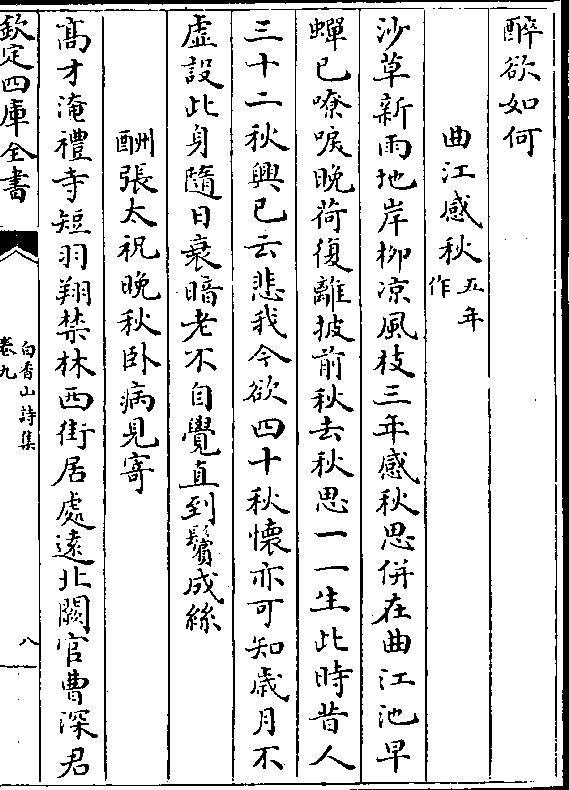 醉欲如何
曲江感秋五年作
沙草新雨地岸柳凉風枝三年感秋思併在曲江池早
蟬已嘹唳晚荷復離披前秋去秋思一一生此時昔人
三十二秋興已云悲我今欲四十秋懷亦可知歲月不
虛設此身隨日衰暗老不自覺直到鬢成絲
酬張太祝晚秋卧病見寄
髙才淹禮寺短羽翔禁林西街居處遠北闕官曹深君
欽定四庫全書
白香山詩集
卷九
八